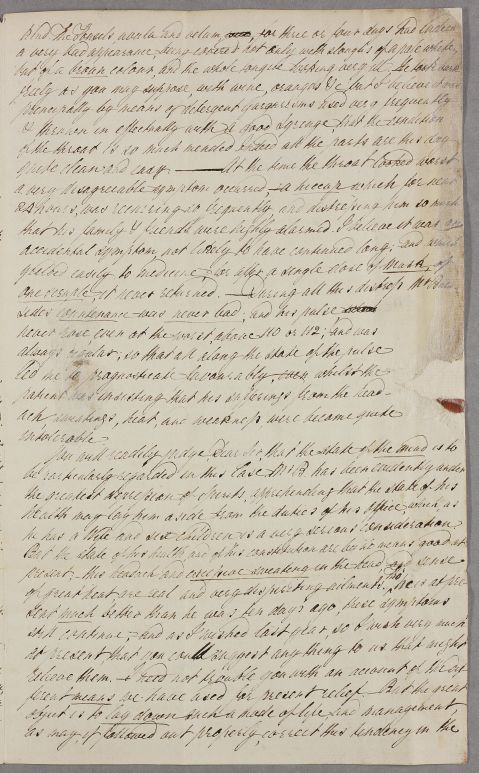 kind. The Tonsils uvula and velum, for three or four days had indeed
a very bad appearance, being covered not only with sloughs of a pale white,
but of a brown colour, and the whole tongue looking very ill. He took very
freely as you may suppose, with wine, oranges &c, but I believe
principally by means of detergent gargarisms used very frequently
& thrown in effectually with a good syringe, that the condition
of the throat is so much mended indeed all the parts are this day
quite clean and easy. — At the time the throat looked worst
a very disagreeable symptom occurred, a hiccup which for near
24 hours, was recurring so frequently and distressing him so much
that his family & friends were highly alarmed. I believe it was an
accidental symptom, not likely to have continued long, and as it
yielded easily to medicine, for after a single dose of Musk, of
one scruple, it never returned. — During all this distress Mr
countenance was never bad, and his pulse
never rose, even at the worst above 110 or 112, and was
always regular; so that all along the state of the pulse
led me to prognosticate favourably, even whilst the
patient was insisting that his sufferings from the head
ach, sweatings, heat and weakness, were become quite
intolerable.
You will readily judge, Dear Sir, that the state of the mind is to
be particularly regarded in this Case. Mr B has been evidently under
the greatest depression of Spirits, apprehending that the state of his
health may lay him aside from the duties of his office, which as
he has a Wife and six Children is a very serious Consideration.
But the state of his health and of his constitution are by no means good at
present. this headach and excessive sweating in the head and sense
of great heat are real and very dispiriting ailments. Tho' he is at pre-
sent much better than he was ten days ago, these symptoms
still continue — and as I wished last year, so I wish very much
at present that you could suggest anything to us that might
relieve them. I need not trouble you with an account of the dif-
ferent means we have used for present relief. But the great
object is to lay down such a mode of life and management
as may, if followed out properly, correct this tendency in the